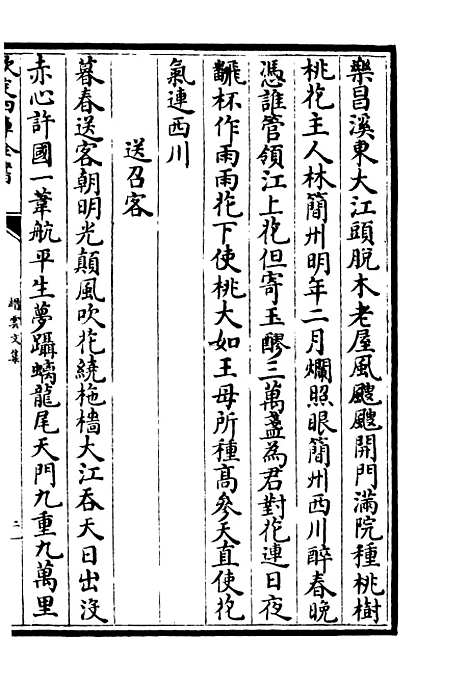 樂昌溪東大江頭脫木老屋風颼颼開門滿院種桃樹
桃花主人林簡州明年二月爛照眼簡州西川醉春晚
憑誰管領江上花但寄玉醪三萬盞為君對花連日夜
飜杯作雨雨花下使桃大如王母所種高參天直使花
氣連西川
送召客
暮春送客朝明光顛風吹花繞柂檣大江吞天日出沒
赤心許國一葦航平生夢躡螭龍尾天門九重九萬里
欽定四庫全書
縉雲文集